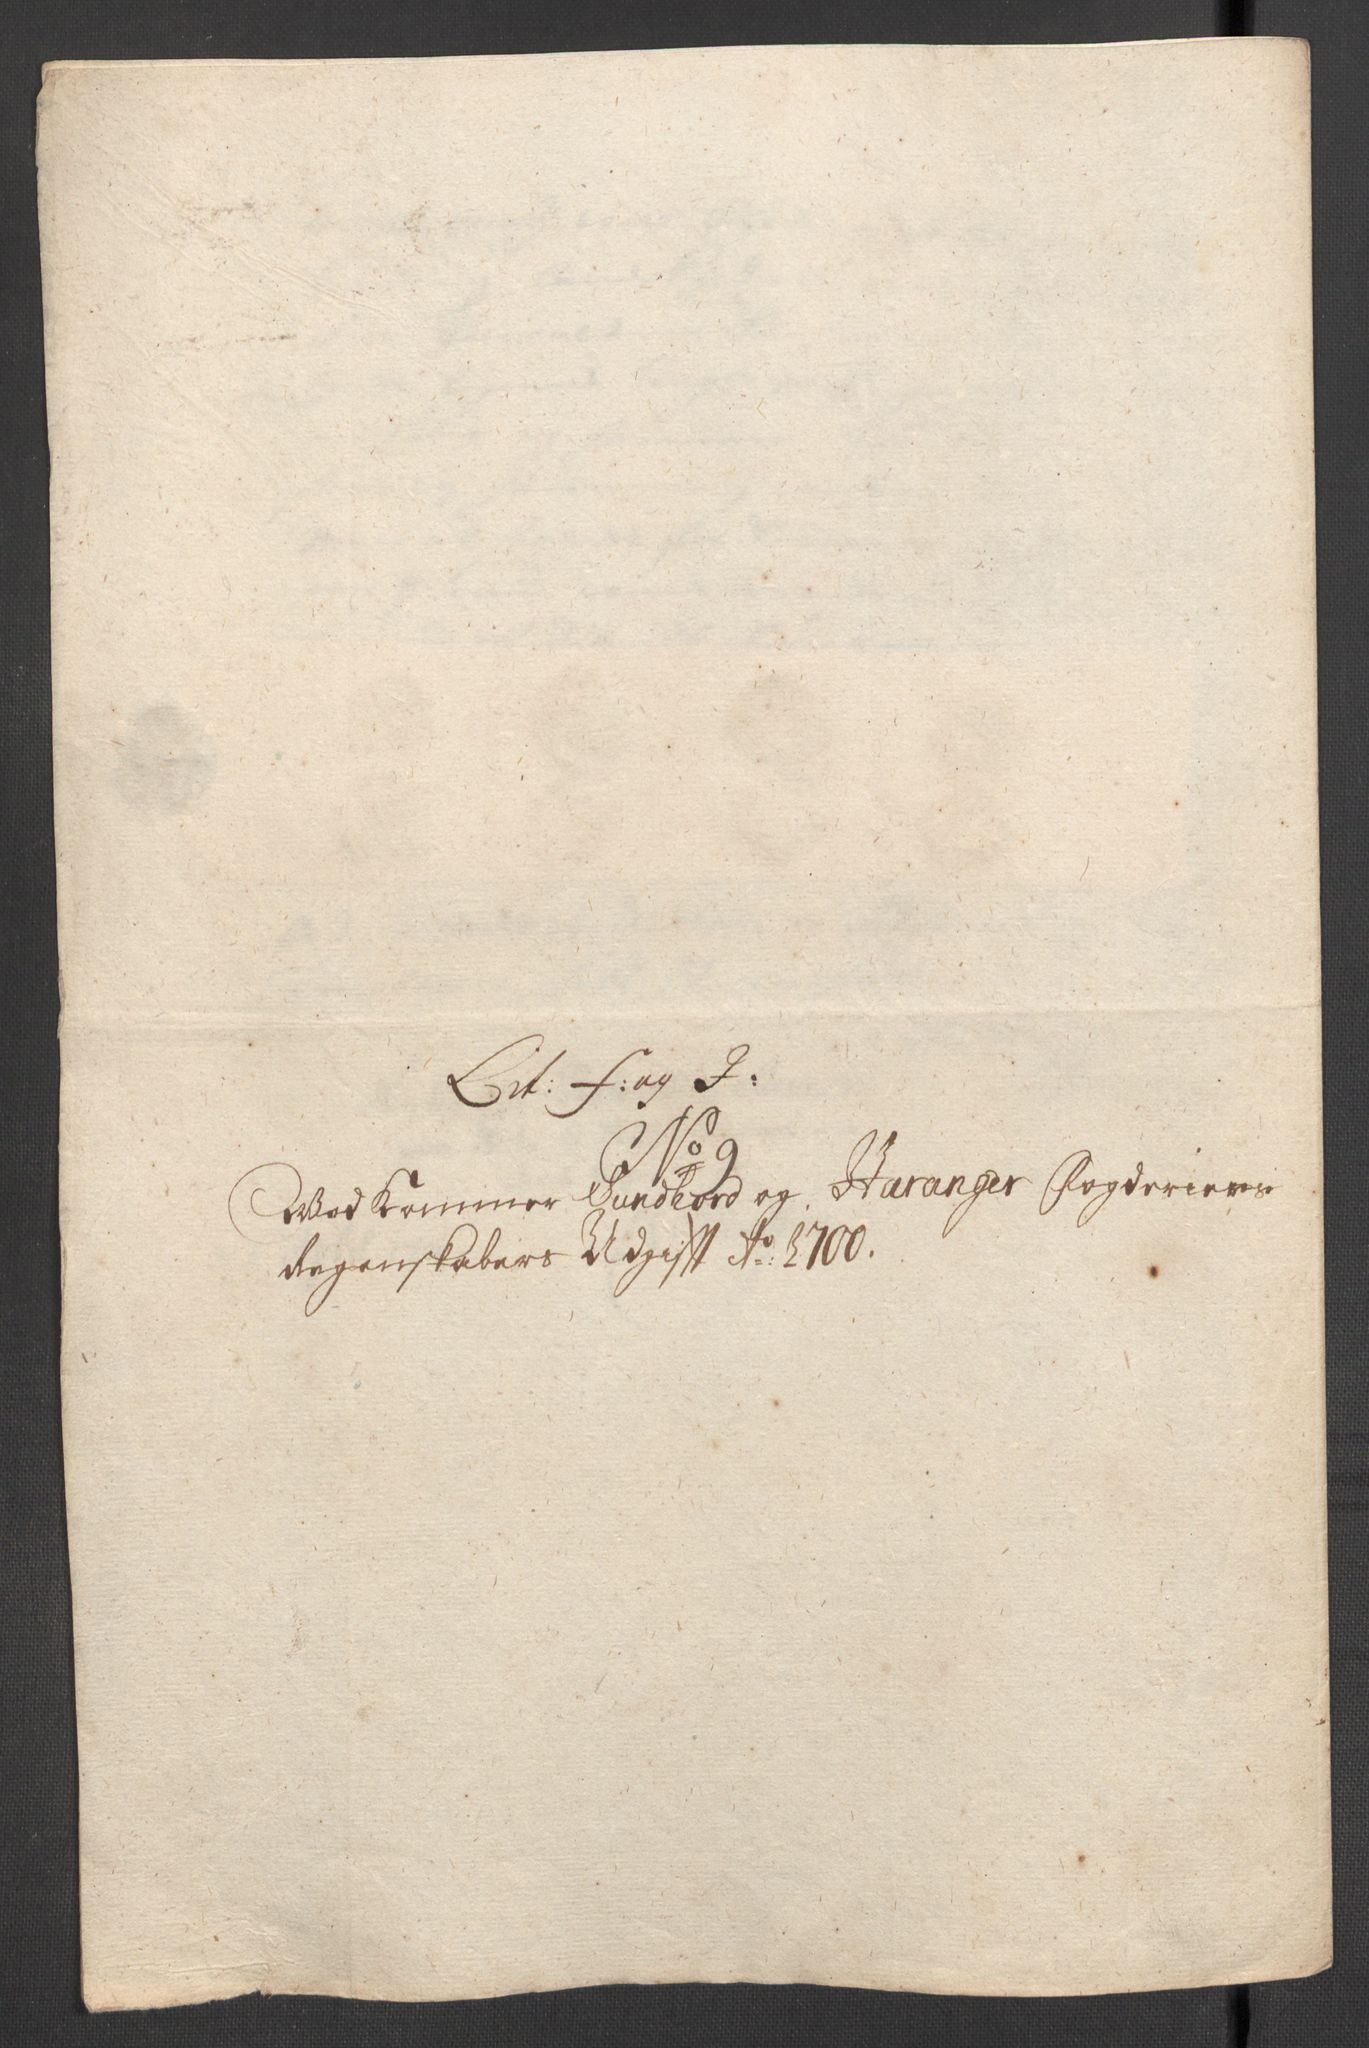 Lit: F: og I:
No 9
Wedkommer Sundhord og Haranger Fogderiers
Regenskabers Udgifft Ao: 1700.